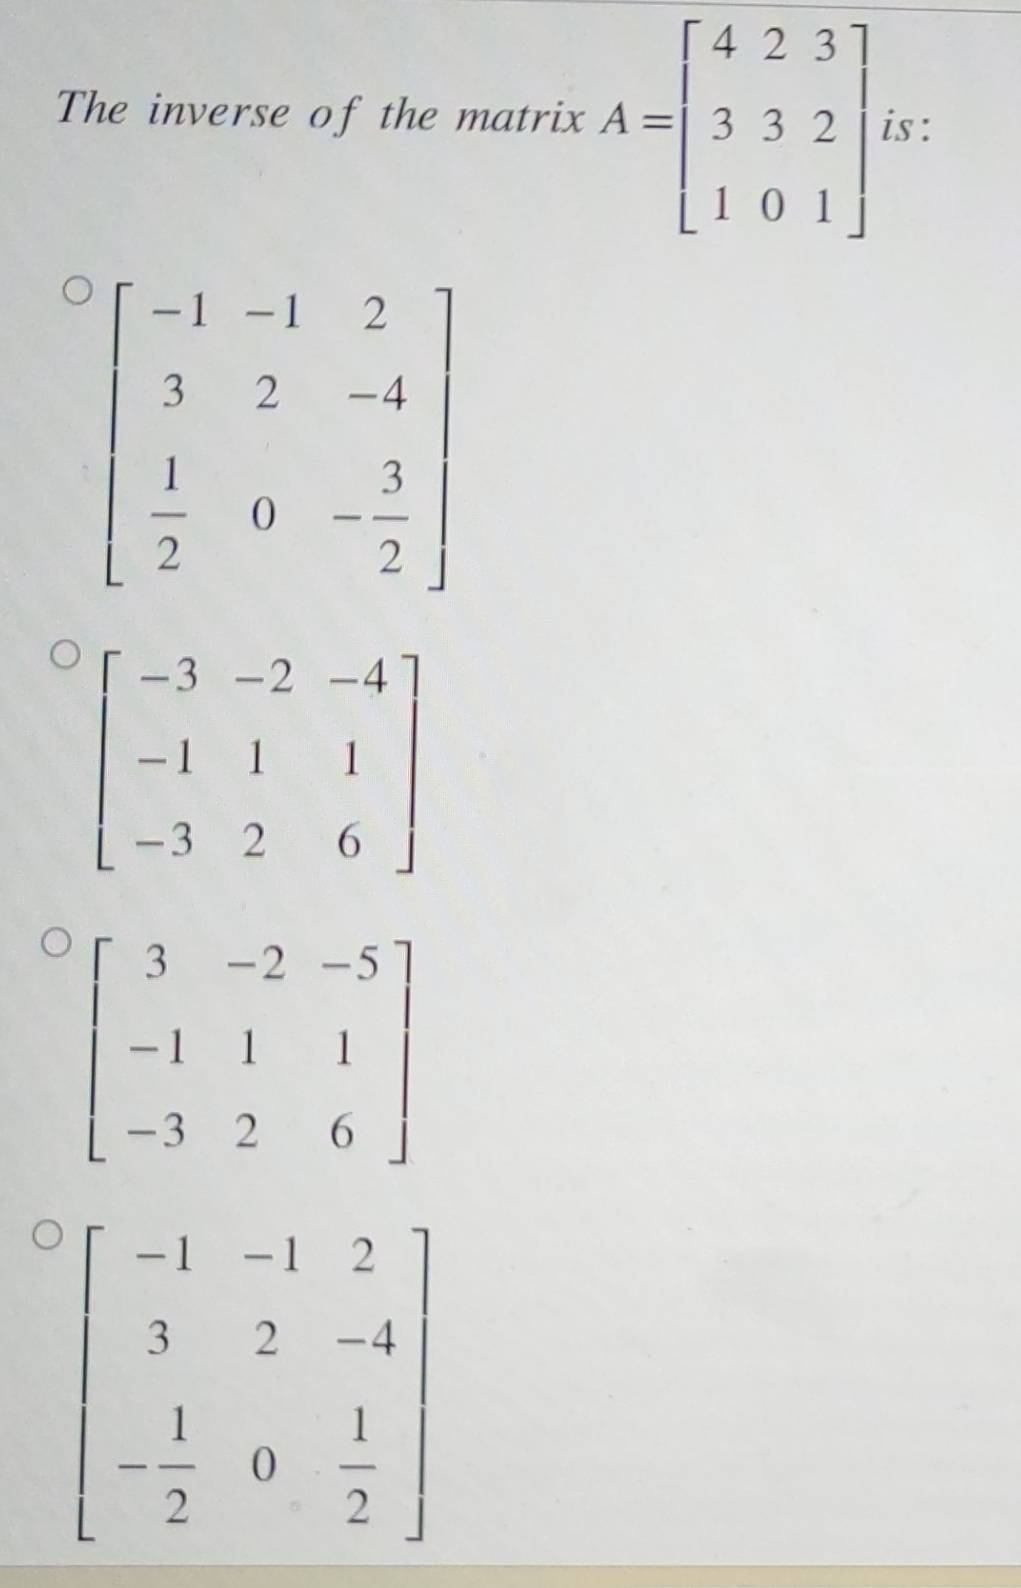 The inverse of the matrix A = [ 4 2 3
3 3 2
1 0 1 ] is:
[ −1 −1 2
3 2 −4
1/2 0 −3/2 ]
[ −3 −2 −4
−1 1 1
−3 2 6 ]
[ 3 −2 −5
−1 1 1
−3 2 6 ]
[ −1 −1 2
3 2 −4
−1/2 0 1/2 ]